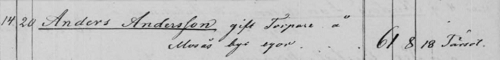 14 20 Anders Andersson gift Torpare å
Morås bys egor . . . 61 8 18 Tärsot.